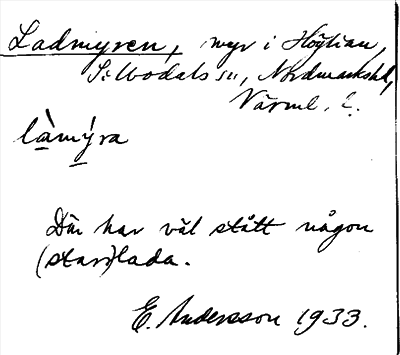 Ladmyren, myr i Höglian,
Silbodals sn, Nordmarks hd,
Värml. l.
làmýra
Där har väl stått någon
(starr)lada.
E. Andersson 1933.